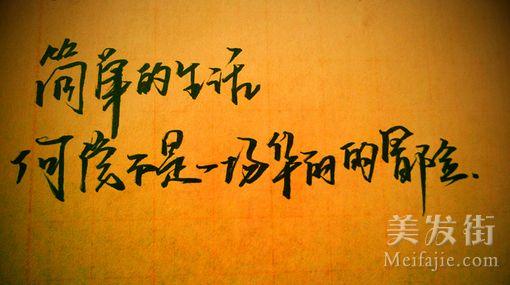 简单的生活
何尝不是一场华丽的冒险.
美发街
Meifajie.com